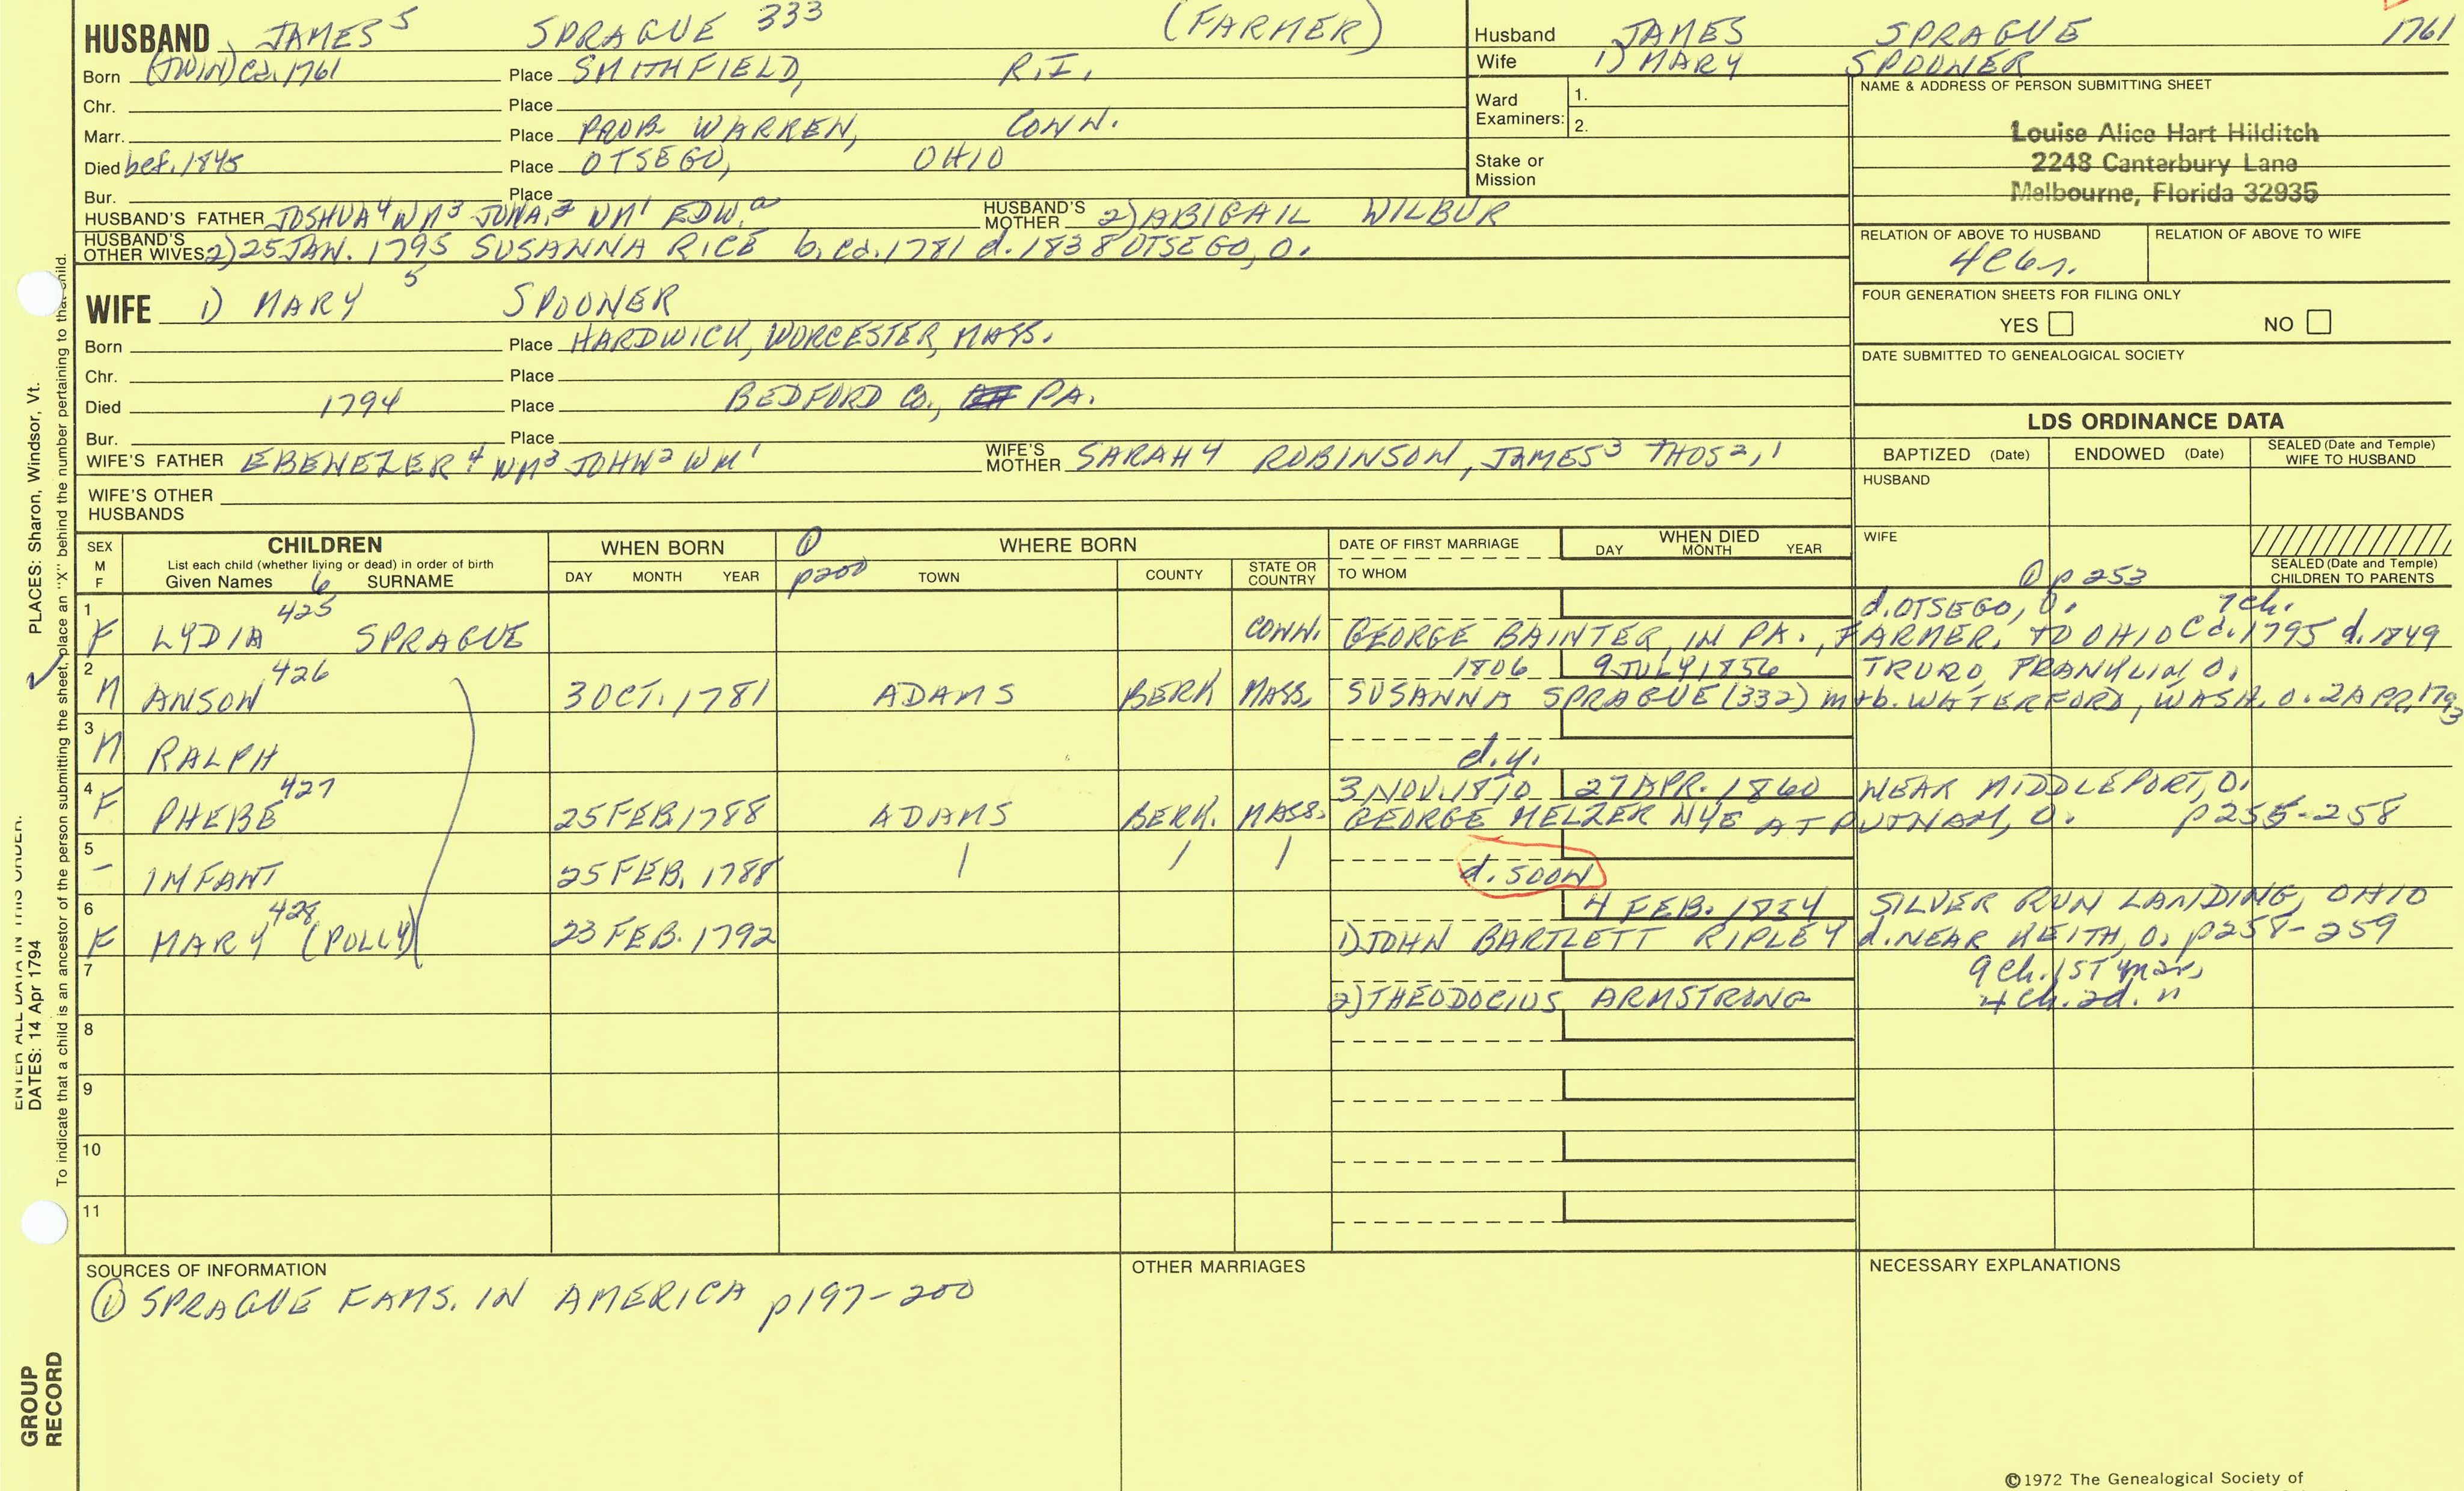 HUSBAND JAMES⁵ SPRAGUE 333 (FARMER)
Born (TWIN) Ca. 1761 Place SMITHFIELD, R.I.
Chr. Place
Marr. Place PROB. WARREN, CONN.
Died bef. 1845 Place OTSEGO, OHIO
Bur. Place
HUSBAND'S FATHER JOSHUA⁴ WM³ JONA.² WM¹ EDW.ᵃ HUSBAND'S MOTHER 2) ABIGAIL WILBUR
HUSBAND'S OTHER WIVES 2) 25 JAN. 1795 SUSANNA RICE b. Ca. 1781 d. 1838 OTSEGO, O.
WIFE 1) MARY⁵ SPOONER
Born Place HARDWICK, WORCESTER, MASS.
Chr. Place
Died 1794 Place BEDFORD CO., PA.
Bur. Place
WIFE'S FATHER EBENEZER⁴ WM³ JOHN² WM¹ WIFE'S MOTHER SARAH⁴ ROBINSON, JAMES³ THOS²,¹
WIFE'S OTHER HUSBANDS
Husband JAMES SPRAGUE 1761
Wife 1) MARY SPOONER
Ward Examiners: 1.
2.
Stake or Mission
NAME & ADDRESS OF PERSON SUBMITTING SHEET
Louise Alice Hart Hilditch
2248 Canterbury Lane
Melbourne, Florida 32935
RELATION OF ABOVE TO HUSBAND RELATION OF ABOVE TO WIFE
FOUR GENERATION SHEETS FOR FILING ONLY
YES NO
DATE SUBMITTED TO GENEALOGICAL SOCIETY
LDS ORDINANCE DATA
BAPTIZED (Date) ENDOWED (Date) SEALED (Date and Temple) WIFE TO HUSBAND
HUSBAND
WIFE
① p 253
SEALED (Date and Temple) CHILDREN TO PARENTS
SEX M F
CHILDREN
List each child (whether living or dead) in order of birth
Given Names 6 SURNAME
WHEN BORN
DAY MONTH YEAR
① p200
WHERE BORN
TOWN COUNTY STATE OR COUNTRY
DATE OF FIRST MARRIAGE
TO WHOM
WHEN DIED
DAY MONTH YEAR
1 d. OTSEGO, O. 7 ch.
F LYDIA 425 SPRAGUE CONN. GEORGE BAINTER, IN PA., FARMER, TO OHIO Ca. 1795 d. 1849
2 1806 9 JULY 1856 TRURO, FRANKLIN, O.
M ANSON 426 3 OCT. 1781 ADAMS BERK MASS. SUSANNA SPRAGUE (332) m+b. WATERFORD, WASH. O. 2 APR. 1793
3
M RALPH d.y.
4 3 NOV. 1810 27 APR. 1860 NEAR MIDDLEPORT, O.
F PHEBE 427 25 FEB. 1788 ADAMS BERK. MASS. GEORGE MELZER NYE AT PUTNAM, O. p 255-258
5
- INFANT 25 FEB. 1788 | | | d. SOON
6 4 FEB. 1854 SILVER RUN LANDING, OHIO
F MARY 428 (POLLY) 23 FEB. 1792 1) JOHN BARTLETT RIPLEY d. NEAR KEITH, O. p258-259
7 9 ch. 1ST mar.
2) THEODOCIUS ARMSTRONG 4 ch. 2d. "
8
9
10
11
SOURCES OF INFORMATION
① SPRAGUE FAMS. IN AMERICA p197-200
OTHER MARRIAGES
NECESSARY EXPLANATIONS
©1972 The Genealogical Society of
PLACES: Sharon, Windsor, Vt.
To indicate that a child is an ancestor of the person submitting the sheet, place an "X" behind the number pertaining to that child.
ENTER ALL DATA IN THIS ORDER:
DATES: 14 Apr 1794
GROUP
RECORD